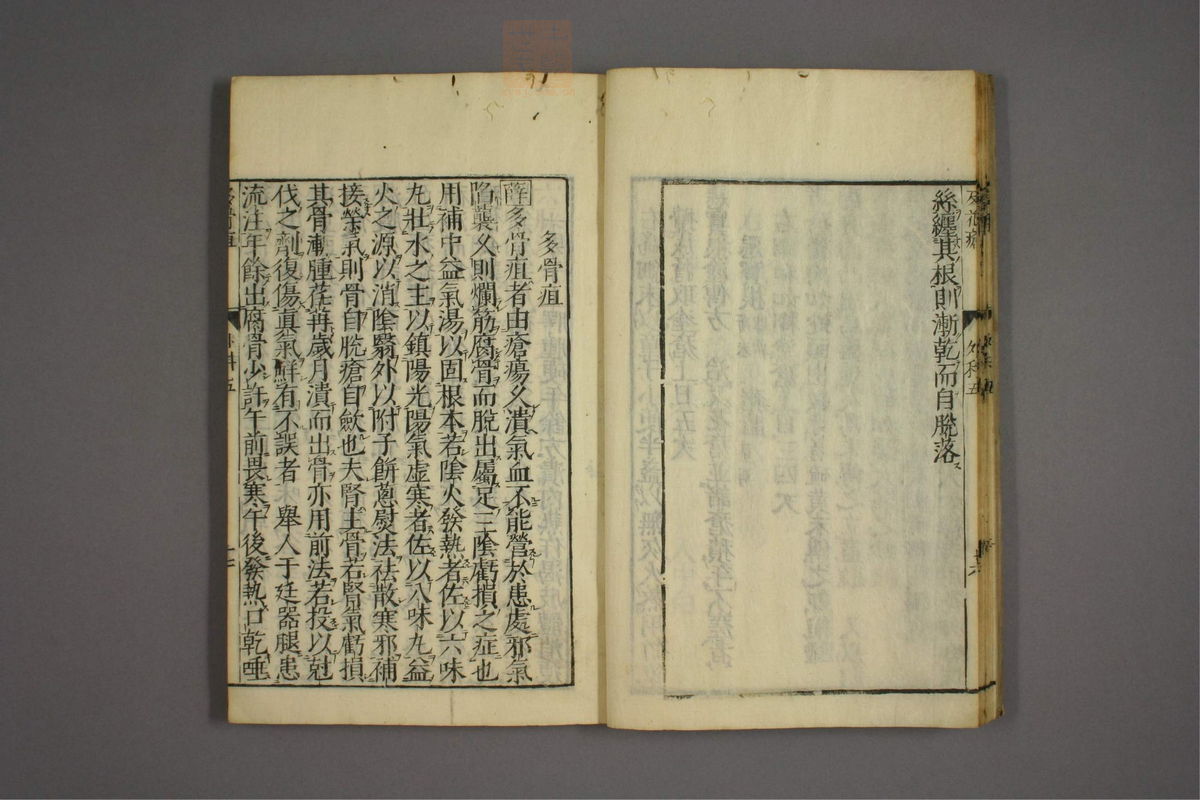 絲纏其根則漸乾而自脫落
外科五
多骨疽
薛多骨疽者由瘡瘍久潰氣血不能營於患處邪氣
陷襲久則爛筋腐骨而脫出屬足三陰虧損之症也
用補中益氣湯以固根本若陰火發熱者佐以六味
丸壯水之主以鎮陽光陽氣虛寒者佐以八味丸益
火之源以消陰翳外以附子餅蔥熨法祛散寒邪補
接榮氣則骨自脫瘡自歛也夫腎主骨若腎氣虧損
其骨漸腫荏苒歲月潰而出骨亦用前法若投以尅
伐之劑復傷眞氣鮮有不誤者 舉人于廷器腿患
流注年餘出腐骨少許午前畏寒午後發熱口乾唾
多骨疽